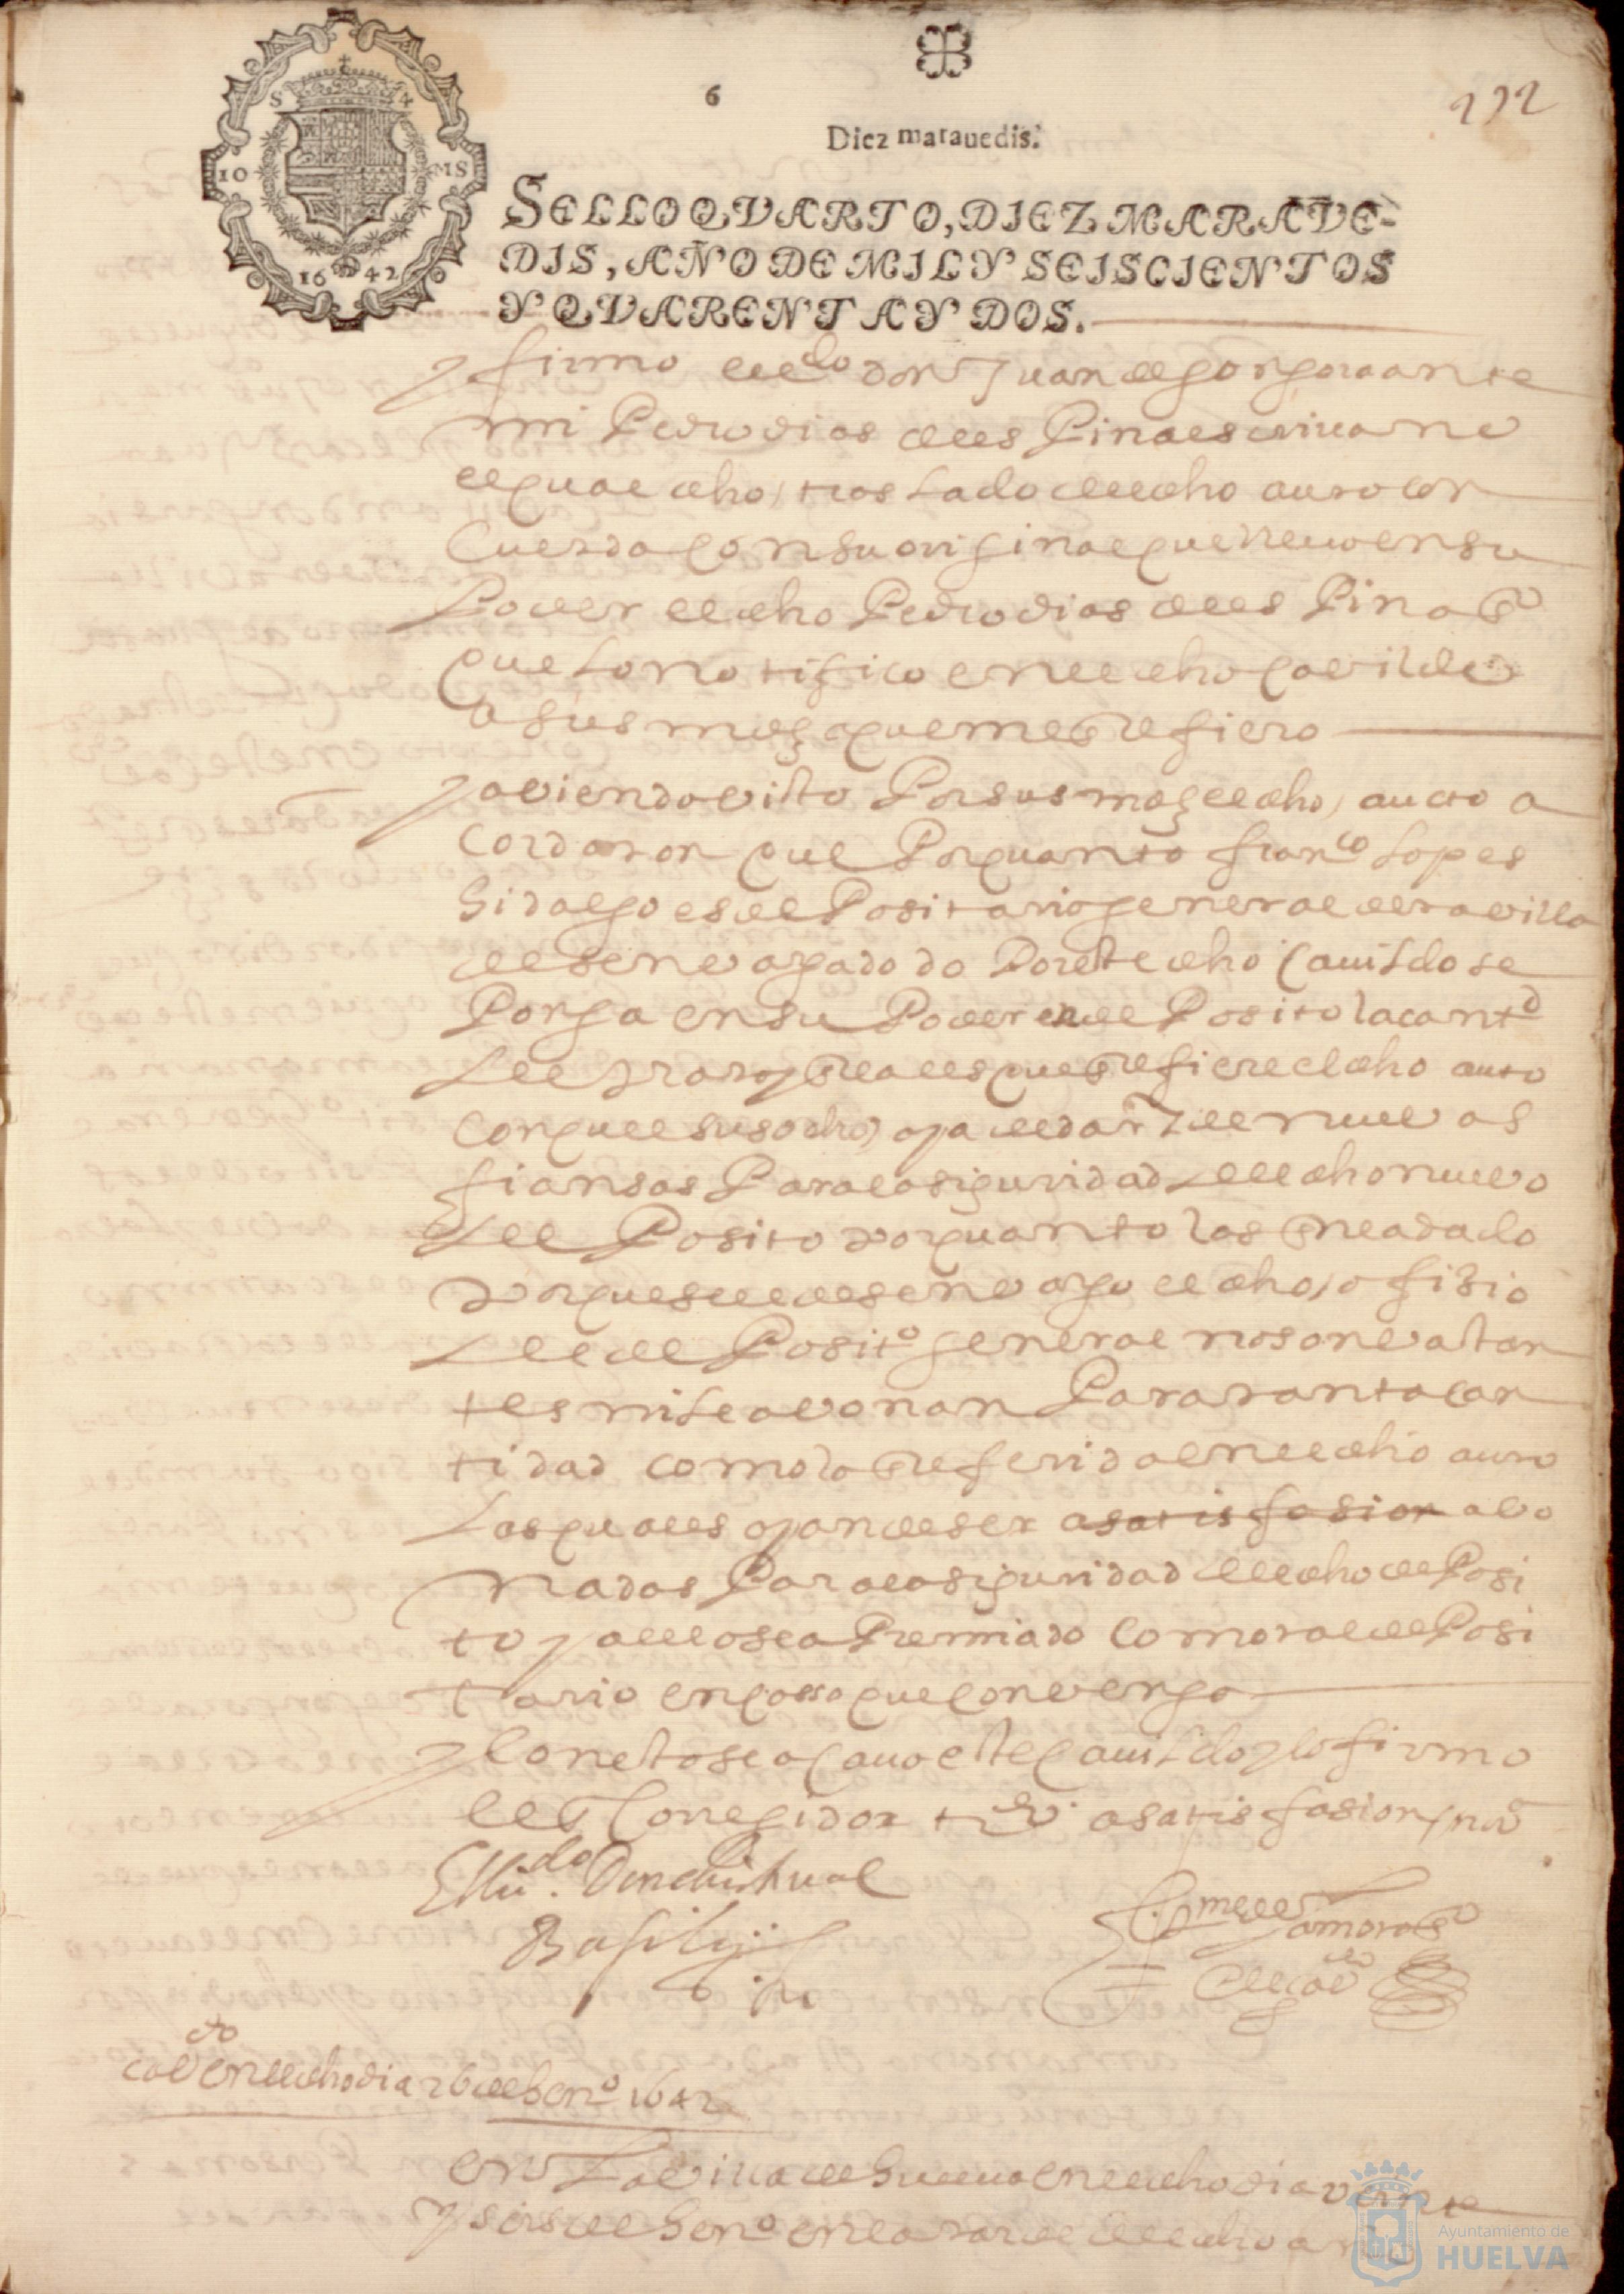 6
212
Diez marauedis.
S 4
10 MS
1642
SELLO QVARTO, DIEZ MARAVE-
DIS, AÑO DE MIL Y SEISCIENTOS
Y QVARENTA Y DOS.
y firmo el ldo don Juan de gongora ante
mi Pedro dias del es Pina escriuano
el qual dho traslado del dho auto con
cuerda con su original que lleuo en su
Poder el dho Pedro dias del es Pina
que lo notifico en el dho cavildo
a sus mdes a que me refiero
y aviendo visto Por sus mdes el dho aucto a
cordaron que Por quanto franco lopes
hidalgo es de Positario general desta villa
de se Por este dho Cauildo se
Ponga en su Poder en de Posito la cantd
de que refiere el dho auto
con que el susodho aya de dar de nueuo as
fiansas Para la siguridad del dho nueuo
de Posito Porquanto las que a dado
el dho ofisio
de de Posito general no son bastan
tes ni le abonan Para tanta can
tidad como la referida en el dho auto
Las quales ayan de ser a satisfasion abo
nadas Para la siguridad del dho de Posi
to y a ello sea Premiado como tal de Posi
tario en caso que convenga
y con esto se acauo este Cauildo y lo firmo
el Corregidor a satisfasion
Ellido. Don christual
cabdo en el dho dia 26 de heno 1642
en La villa de huelua en el dho dia veinte
y seis de heno en la tarde del dho a
Ayuntamiento de
HUELVA